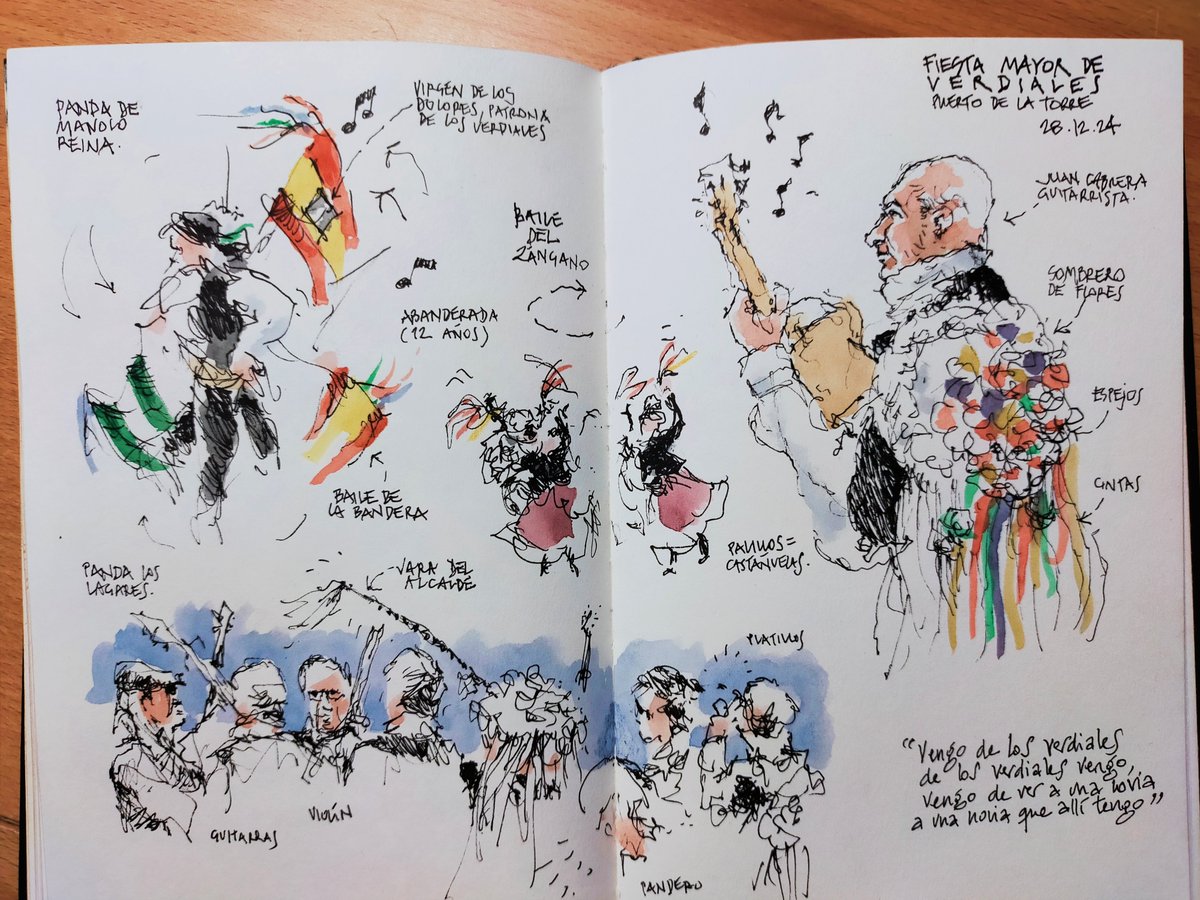 PANDA DE
MANOLO
REINA.
VIRGEN DE LOS
DOLORES, PATRONA
DE LOS VERDIALES
BAILE
DEL
ZÁNGANO
ABANDERADA
(12 AÑOS)
BAILE DE
LA BANDERA
PANDA LOS
LAGARES.
VARA DEL
ALCALDE
GUITARRAS
VIOLÍN
FIESTA MAYOR DE
VERDIALES
PUERTO DE LA TORRE
28.12.24
JUAN CABRERA
GUITARRISTA.
SOMBRERO
DE FLORES
ESPEJOS
CINTAS
PALILLOS =
CASTAÑUELAS.
PLATILLOS
PANDERO
"Vengo de los verdiales
de los verdiales vengo,
vengo de ver a una novia
a una novia que allí tengo"